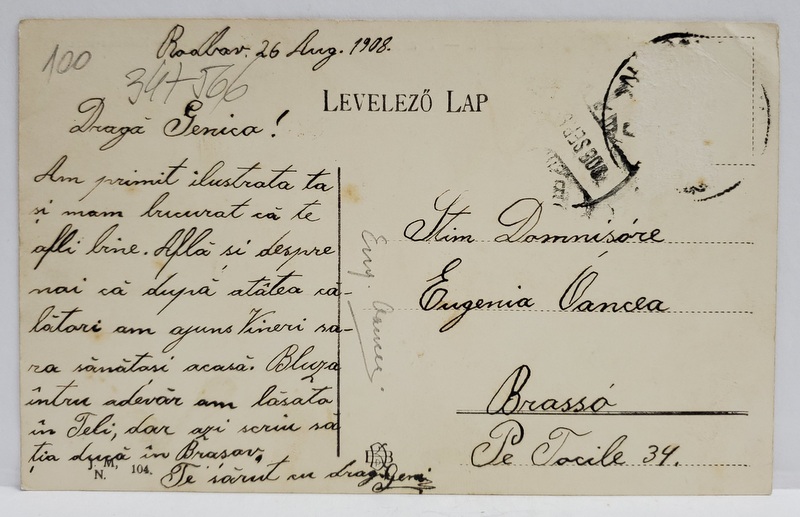 Rodbav. 26 Aug. 1908.
100
34+566
LEVELEZŐ LAP
Dragă Genica!
Am primit ilustrata ta
și mam bucurat că te
afli bine. Află si despre
noi că după atâtea că-
lători am ajuns Vineri sa-
ra sănătosi acasă. Bluza
întru adevăr am lăsato
în Teli, dar azi scriu să
ția ducă în Brașov.
Te sărut cu drag Geni
J. M,
N. 104.
Eug. Oancea
Stim Domnișóre
Eugenia Oancea
Brassó
Pe Tocile 34.